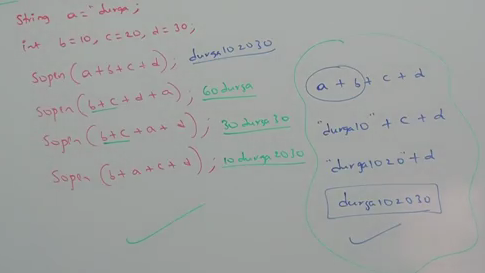 String a="durga;
int b=10, c=20, d=30;
Sopln(a+b+c+d); durga102030
Sopln(b+c+d+a); 60durga
Sopln(b+c+a+d); 30durga30
Sopln(b+a+c+d); 10durga2030
a+b+c+d
"durga10"+c+d
"durga1020"+d
durga102030